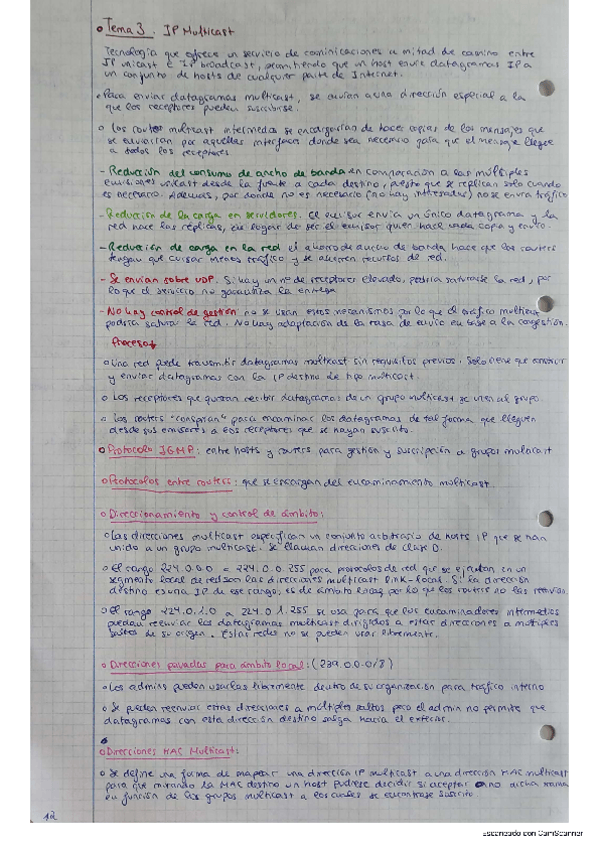 o Tema 3. IP Multicast
Tecnología que ofrece un servicio de cominicaciones a mitad de camino entre
IP unicast e IP broadcast, permitiendo que un host envíe datagramas IP a
un conjunto de hosts de cualquier parte de Internet.
o Para enviar datagramas multicast, se envían a una dirección especial a la
que los receptores pueden suscribirse.
o Los routers multicast intermedios se encargarían de hacer copias de los mensajes que
se enviarían por aquellas interfaces donde sea necesario para que el mensaje llegue
a todos los receptores
- Reducción del consumo de ancho de banda en comparación a las múltiples
emisiones unicast desde la fuente a cada destino, puesto que se replican solo cuando
es necesario. Además, por donde no es necesario (no hay interesados) no se envía tráfico
- Reducción de la carga en servidores. El emisor envía un único datagrama y la
red hace las réplicas, en lugar de ser el emisor quien hace cada copia y envío.
- Reducción de carga en la red el ahorro de ancho de banda hace que los routers
tengan que cursar menos tráfico y se ahorren recursos de red.
- Se envían sobre UDP. Si hay un nº de receptores elevado, podría saturarse la red, por
lo que el servicio no garantiza la entrega
- No hay control de gestión no se usan esos mecanismos por lo que el tráfico multicast
podría saturar la red. No hay adaptación de la tasa de envío en base a la congestión.
Proceso↓
o Una red puede transmitir datagramas multicast sin requisitos previos. Solo tiene que
y enviar datagramas con la IP destino de tipo multicast.
o Los receptores que quieran recibir datagramas de un grupo multicast se unen al grupo.
o Los routers "conspiran" para encaminar los datagramas de tal forma que lleguen
desde sus emisores a los receptores que se hayan suscrito.
o Protocolo IGMP: entre hosts y routers para gestión y suscripción a grupos multicast
o Protocolos entre routers: que se encargan del encaminamiento multicast.
o Direccionamiento y control de ámbito:
o Las direcciones multicast especifican un conjunto arbitrario de hosts IP que se han
unido a un grupo multicast. Se llaman direcciones de clase D.
o El rango 224.0.0.0 = 224.0.0.255 para protocolos de red que se ejecutan en un
segmento local de red son las direcciones multicast link-local. Si la dirección
destino es una IP de ese rango, es de ámbito local por lo que los routers no las reenvían.
o El rango 224.0.1.0 a 224.0.1.255 se usa para que los encaminadores intermedios
puedan reenviar los datagramas multicast dirigidos a estas direcciones a múltiples
saltos de su origen. Estas redes no se pueden usar libremente.
o Direcciones privadas para ámbito local: (239.0.0.0/8)
o Los admins pueden usarlas libremente dentro de su organización para tráfico interno
o Se pueden reenviar estas direcciones a múltiples saltos pero el admin no permite que
datagramas con esta dirección destino salga hacia el exterior.
o Direcciones MAC Multicast:
o Se define una forma de mapear una dirección IP multicast a una dirección MAC multicast
para que mirando la MAC destino un host pudiese decidir si aceptar o no dicha trama
en función de los grupos multicast a los cuales se encontrase suscrito
12
Escaneado con CamScanner